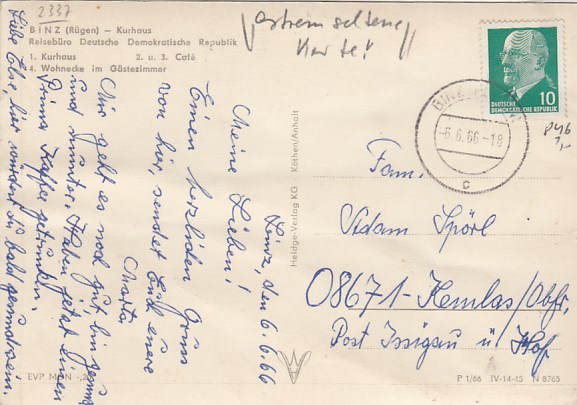 2337
BINZ (Rügen) – Kurhaus
Reisebüro Deutsche Demokratische Republik
1. Kurhaus 2. u. 3. Café
4. Wohnecke im Gästezimmer
extrem seltene
Karte!
Binz, den 6.6.66
Meine Lieben!
Einen herzlichen Gruss
von hier, sendet Euch eure
Marta.
Mir geht es noch gut, bin gesund
und munter. Haben jetzt einen
prima Kaffee getrunken.
Liebe Else, hier würdest du bald gesund sein.
EVP MDN -,20
Heldge-Verlag KG · Köthen/Anhalt
10
DEUTSCHE
DEMOKRATISCHE REPUBLIK
BINZ
-6.6.66-18
c
Fam.
Adam Spörl
08671-Kemlas/Obfr.
Post Issigau ü/Hof
P 1/66 IV-14-45 N 8765